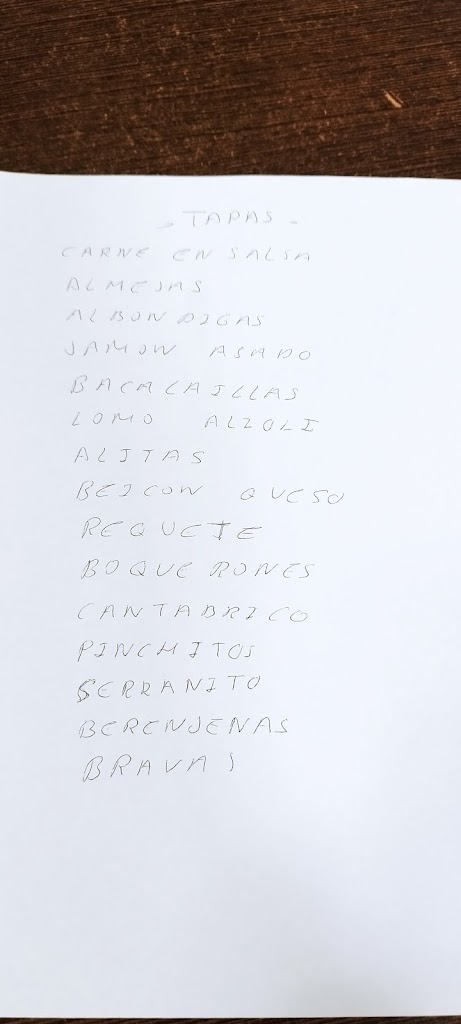 - TAPAS -
CARNE EN SALSA
ALMEJAS
ALBONDIGAS
JAMON ASADO
BACALAILLAS
LOMO ALIOLI
ALITAS
BEICON QUESO
REQUETE
BOQUERONES
CANTABRICO
PINCHITOS
SERRANITO
BERENJENAS
BRAVAS